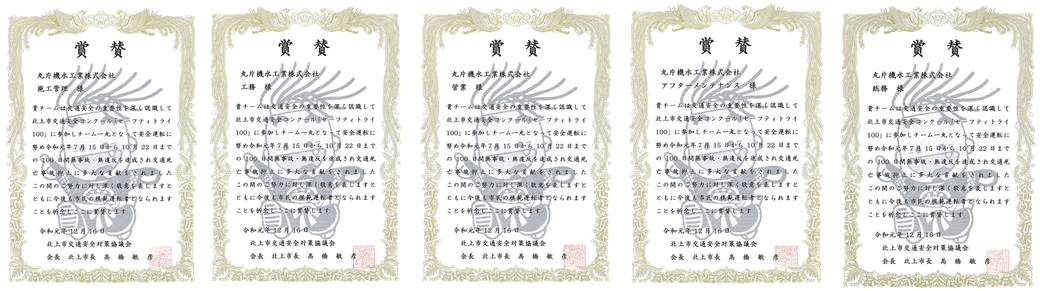 賞賛
丸片機水工業株式会社
施工管理 様
貴チームは交通安全の重要性を深く認識して
北上市交通安全コンクール「セーフティトライ
100」に参加しチーム一丸となって安全運転に
努め令和元年7月15日から10月22日まで
の100日間無事故・無違反を達成され交通死
亡事故抑止に多大な貢献をされました
この間のご努力に対し深く敬意を表しますと
ともに今後も市民の模範運転者となられます
ことを祈念しここに賞賛します
令和元年12月16日
北上市交通安全対策協議会
会長 北上市長 高橋敏彦
賞賛
丸片機水工業株式会社
工務 様
貴チームは交通安全の重要性を深く認識して
北上市交通安全コンクール「セーフティトライ
100」に参加しチーム一丸となって安全運転に
努め令和元年7月15日から10月22日まで
の100日間無事故・無違反を達成され交通死
亡事故抑止に多大な貢献をされました
この間のご努力に対し深く敬意を表しますと
ともに今後も市民の模範運転者となられます
ことを祈念しここに賞賛します
令和元年12月16日
北上市交通安全対策協議会
会長 北上市長 高橋敏彦
賞賛
丸片機水工業株式会社
営業 様
貴チームは交通安全の重要性を深く認識して
北上市交通安全コンクール「セーフティトライ
100」に参加しチーム一丸となって安全運転に
努め令和元年7月15日から10月22日まで
の100日間無事故・無違反を達成され交通死
亡事故抑止に多大な貢献をされました
この間のご努力に対し深く敬意を表しますと
ともに今後も市民の模範運転者となられます
ことを祈念しここに賞賛します
令和元年12月16日
北上市交通安全対策協議会
会長 北上市長 高橋敏彦
賞賛
丸片機水工業株式会社
アフターメンテナンス 様
貴チームは交通安全の重要性を深く認識して
北上市交通安全コンクール「セーフティトライ
100」に参加しチーム一丸となって安全運転に
努め令和元年7月15日から10月22日まで
の100日間無事故・無違反を達成され交通死
亡事故抑止に多大な貢献をされました
この間のご努力に対し深く敬意を表しますと
ともに今後も市民の模範運転者となられます
ことを祈念しここに賞賛します
令和元年12月16日
北上市交通安全対策協議会
会長 北上市長 高橋敏彦
賞賛
丸片機水工業株式会社
総務 様
貴チームは交通安全の重要性を深く認識して
北上市交通安全コンクール「セーフティトライ
100」に参加しチーム一丸となって安全運転に
努め令和元年7月15日から10月22日まで
の100日間無事故・無違反を達成され交通死
亡事故抑止に多大な貢献をされました
この間のご努力に対し深く敬意を表しますと
ともに今後も市民の模範運転者となられます
ことを祈念しここに賞賛します
令和元年12月16日
北上市交通安全対策協議会
会長 北上市長 高橋敏彦